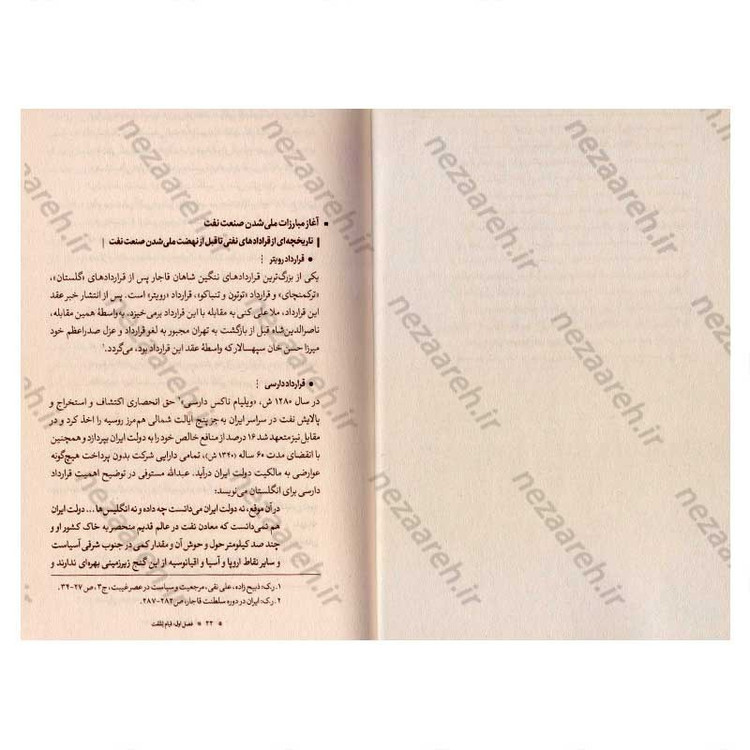 آغاز مبارزات ملی شدن صنعت نفت
تاریخچه‌ای از قرادادهای نفتی تا قبل از نهضت ملی شدن صنعت نفت
قرارداد رویتر
یکی از بزرگ‌ترین قراردادهای ننگین شاهان قاجار پس از قراردادهای «گلستان»،
«ترکمنچای» و قرارداد «توتون و تنباکو»، قرارداد «رویتر» است. پس از انتشار خبر عقد
این قرارداد، ملا علی کنی به مقابله با این قرارداد برمی‌خیزد. به واسطهٔ همین مقابله،
ناصرالدین‌شاه قبل از بازگشت به تهران مجبور به لغو قرارداد و عزل صدراعظم خود
میرزا حسن خان سپهسالار که واسطهٔ عقد این قرارداد بود، می‌گردد.۱
قرارداد دارسی
در سال ۱۲۸۰ ش، «ویلیام ناکس دارسی»۲ حق انحصاری اکتشاف و استخراج و
پالایش نفت در سراسر ایران به جز پنج ایالت شمالی هم‌مرز روسیه را اخذ کرد و در
مقابل نیز متعهد شد ۱۶ درصد از منافع خالص خود را به دولت ایران بپردازد و همچنین
با انقضای مدت ۶۰ ساله (۱۳۴۰ ش)، تمامی دارایی شرکت بدون پرداخت هیچ‌گونه
عوارضی به مالکیت دولت ایران درآید. عبدالله مستوفی در توضیح اهمیت قرارداد
دارسی برای انگلستان می‌نویسد:
در آن موقع، نه دولت ایران می‌دانست چه داده و نه انگلیس‌ها... دولت ایران
هم نمی‌دانست که معادن نفت در عالم قدیم منحصر به خاک کشور او و
چند صد کیلومتر حول و حوش آن و مقدار کمی در جنوب شرقی آسیاست
و سایر نقاط اروپا و آسیا و اقیانوسیه از این گنج زیرزمینی بهره‌ای ندارند و
۱. ر.ک: ذبیح زاده، علی نقی، مرجعیت و سیاست در عصر غیبت، ج۳، ص ۲۷-۳۴.
۲. ر.ک: ایران در دوره سلطنت قاجار، ص ۲۸۲-۲۸۷.
۲۲ فصل اول: قیام
nezaareh.ir
nezaareh.ir
nezaareh.ir
nezaareh.ir
nezaareh.ir
nezaareh.ir
nezaareh.ir
nezaareh.ir